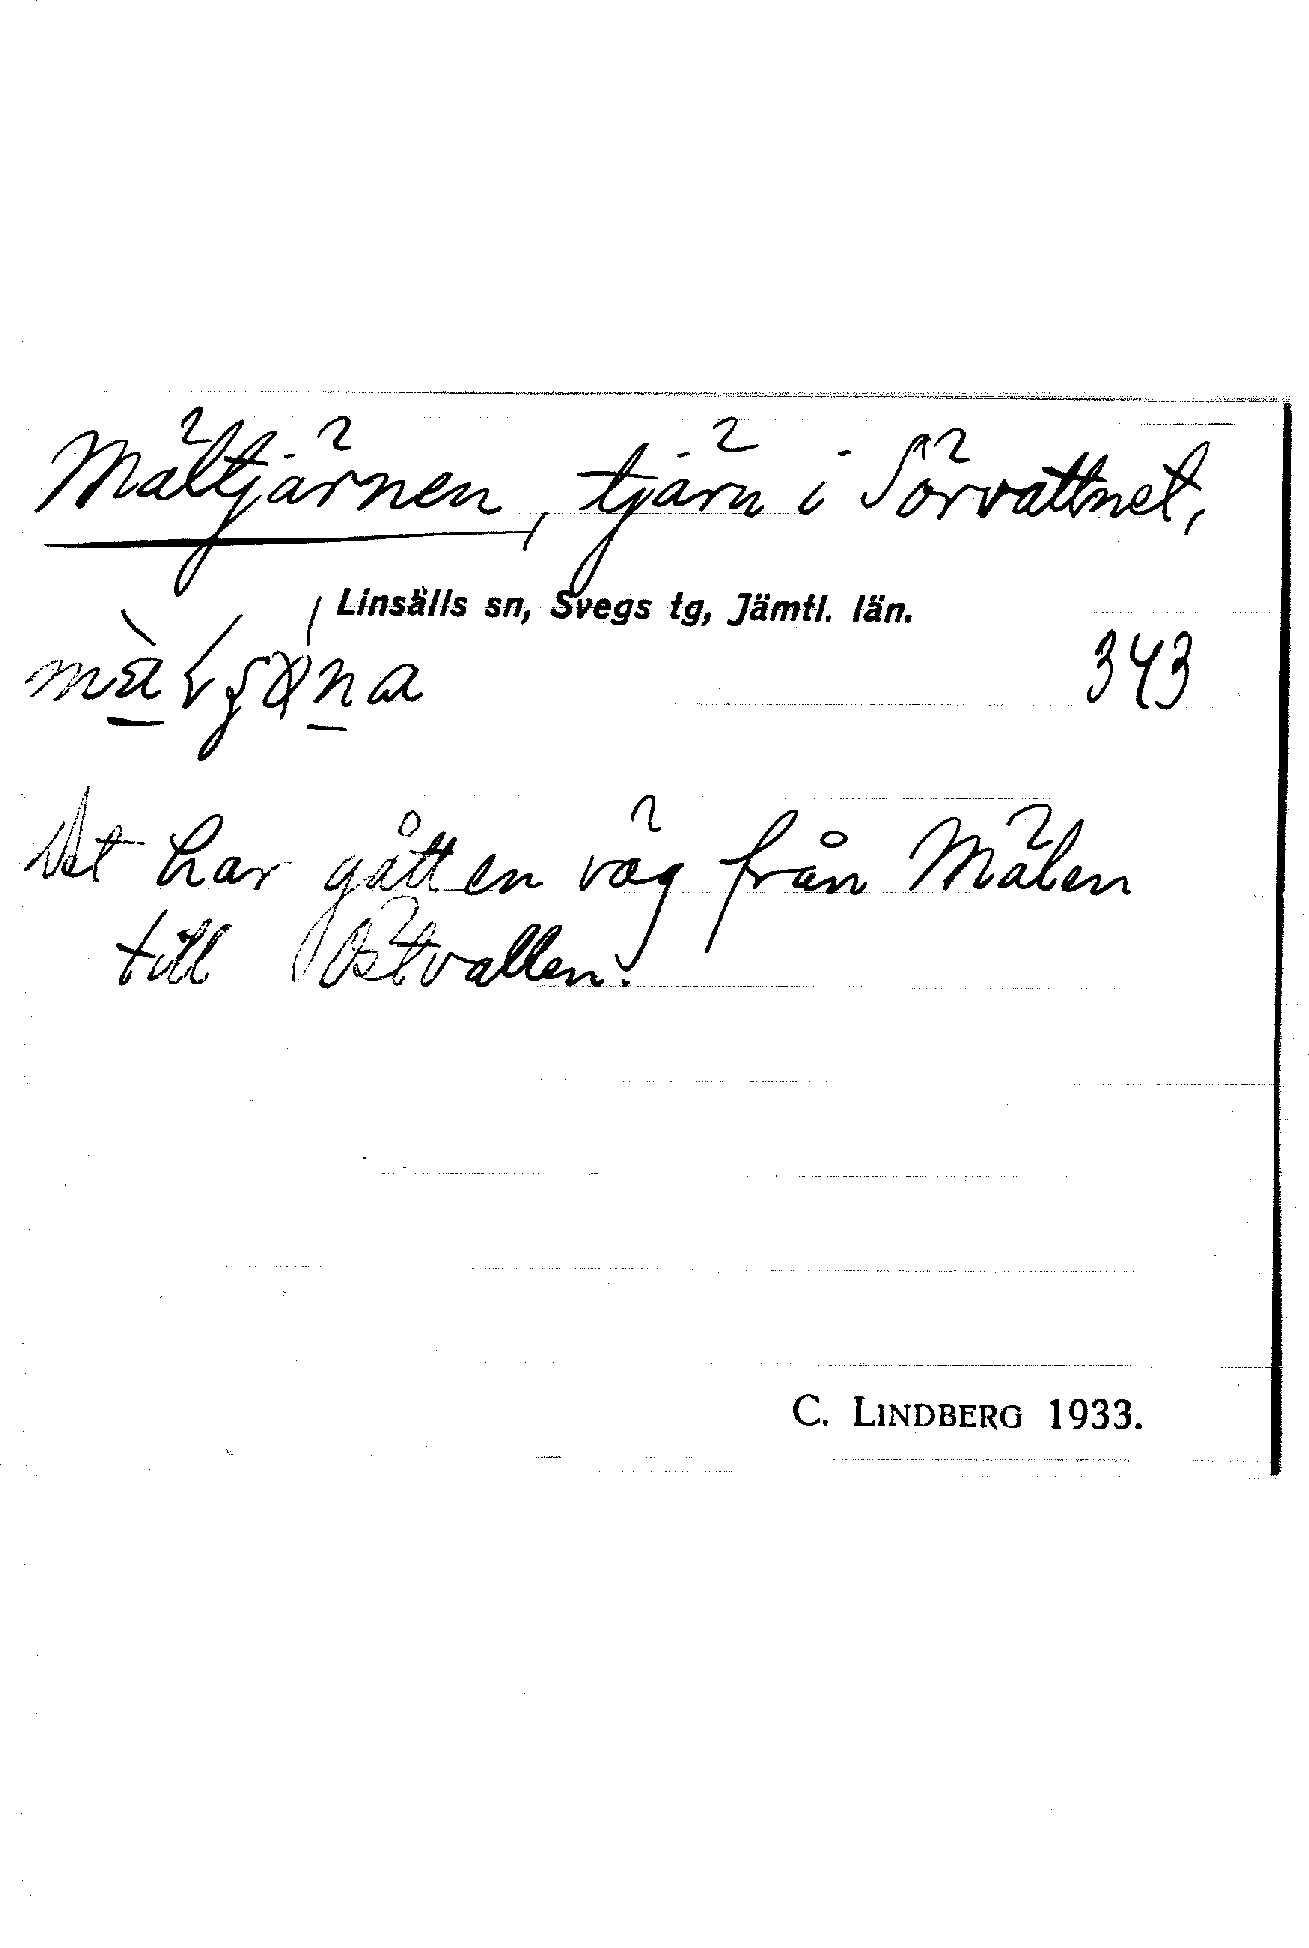 Mältjärnen, tjärn i Sörvattnet,
Linsälls sn, Svegs tg, Jämtl. län.
343
Det har gått en väg från Mälen
till Östvallen.
C. LINDBERG 1933.